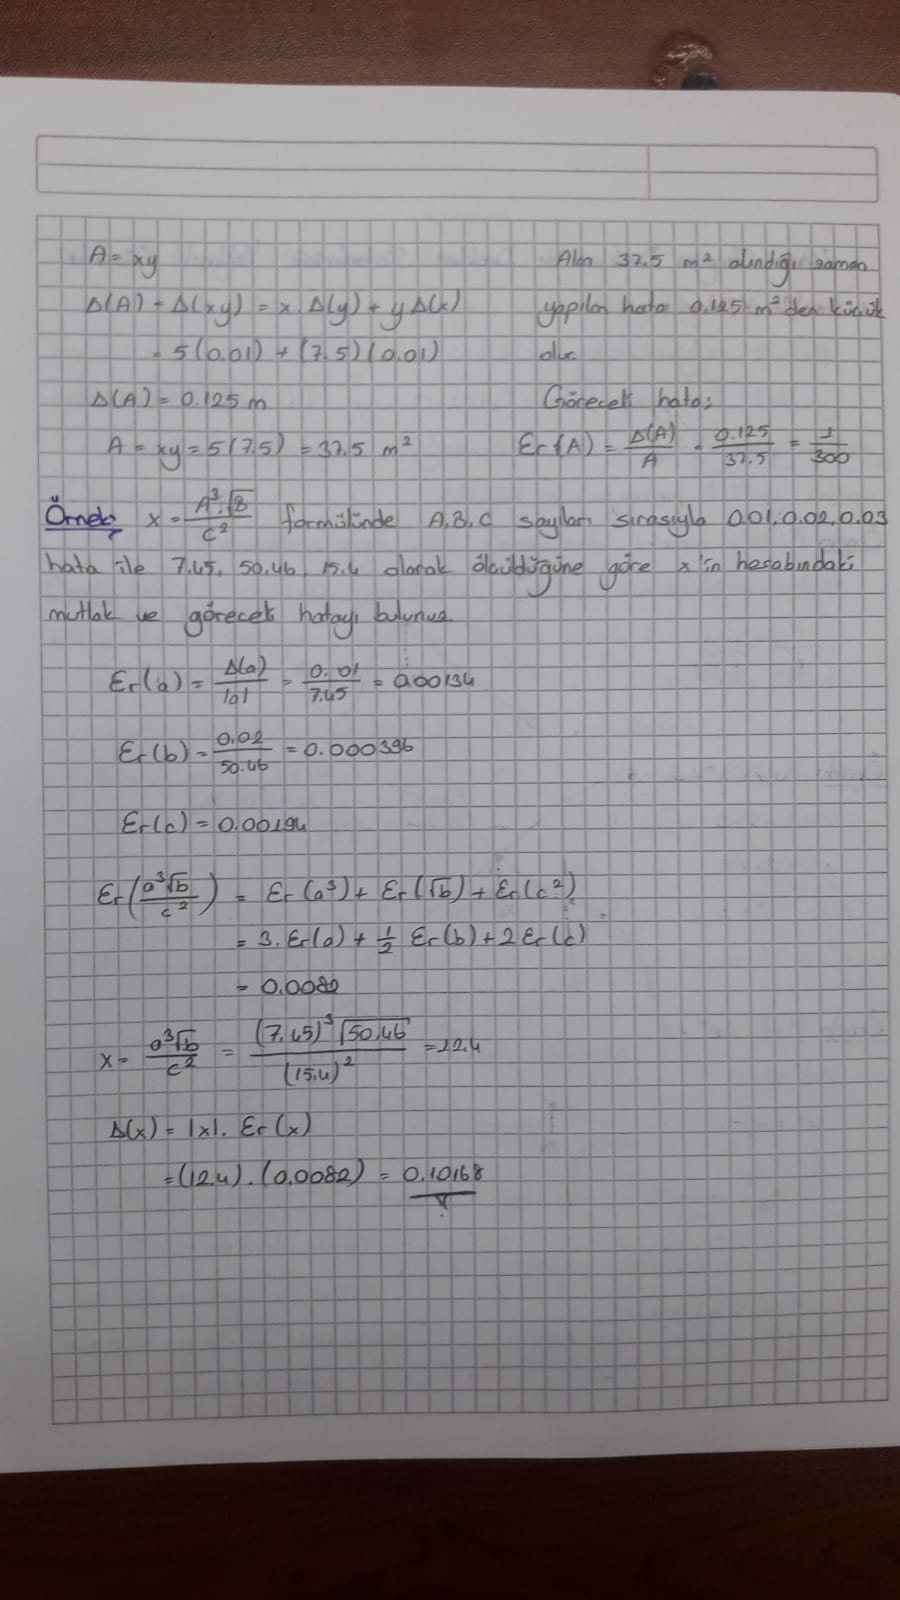 A = xy
Δ(A) = Δ(xy) = x.Δ(y) + yΔ(x)
= 5(0.01) + (7.5)(0.01)
Δ(A) = 0.125 m
A = xy = 5(7.5) = 37.5 m²
Alan 37.5 m² alındığı zaman
yapılan hata 0.125 m² den küçük
olur
Göreceli hata:
Er(A) = Δ(A)/A = 0.125/37.5 = 1/300
Örnek: x = A³.√B/C² formülünde A,B,C sayıları sırasıyla 0.01, 0.02, 0.03
hata ile 7.45, 50.46, 15.4 olarak ölçüldüğüne göre x'in hesabındaki
mutlak ve göreceli hatayı bulunuz
Er(a) = Δ(a)/|a| = 0.01/7.45 = 0.00134
Er(b) = 0.02/50.46 = 0.000396
Er(c) = 0.00194
Er(a³√b/c²) = Er(a³) + Er(√b) + Er(c²)
= 3.Er(a) + 1/2 Er(b) + 2Er(c)
= 0.0082
x = a³√b/c² = (7.45)³√50.46/(15.4)² = 12.4
Δ(x) = |x|. Er(x)
= (12.4).(0.0082) = 0.10168